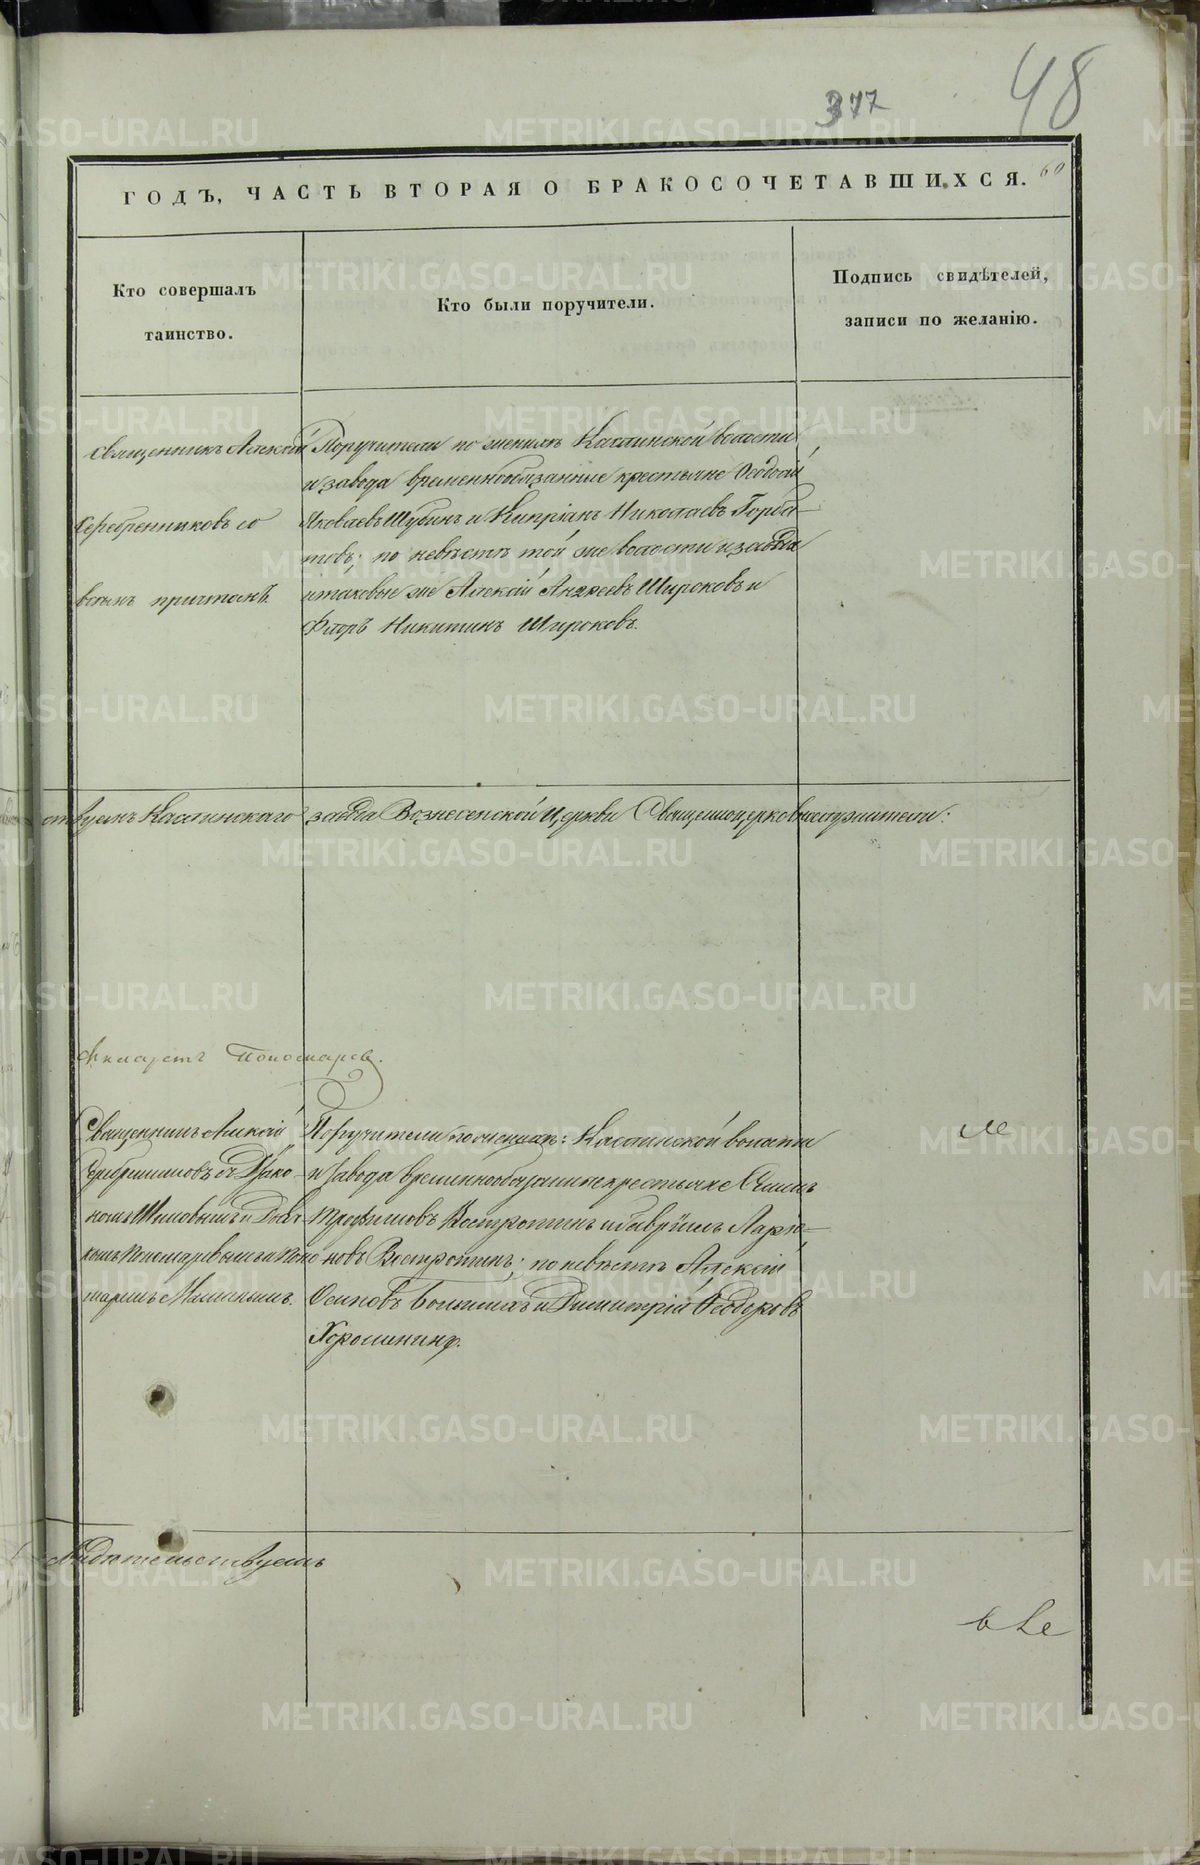 48
377
60
ГОДЪ, ЧАСТЬ ВТОРАЯ О БРАКОСОЧЕТАВШИХСЯ.
Кто совершалъ
таинство.
Кто были поручители.
Подпись свидѣтелей,
записи по желанію.
Священникъ Алексій
Серебренниковъ со
всѣмъ причтомъ.
Поручители по женихѣ Каслинской волости
и завода временнообязанные крестьяне Ѳеодосій
Яковлевъ Шубинъ и Кипріанъ Николаевъ Горба-
товъ; по невѣстѣ той же волости и завода
и таковые же Алексій Андреевъ Широковъ и
Флоръ Никитинъ Широковъ.
ствуемъ Каслинскаго завода Вознесенской Церкви Священноцерковнослужители:
Пономаревъ.
Священникъ Алексій
Серебренниковъ съ Діако-
номъ и Дьяч-
комъ Пономаревымъ и Поно-
маремъ
Поручители по женихѣ: Каслинской волости
и завода временнообязанные крестьяне
Трофимовъ Востротинъ и Гавріилъ Ларіо-
новъ Востротинъ; по невѣстѣ Алексій
Осиповъ и Димитрій Ѳеодоровъ
Хорошенинъ.
видѣтельствуемъ
METRIKI.GASO-URAL.RU